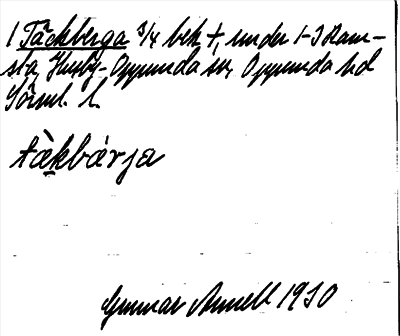 1 Täckberga 3/4 bek †, under 1-3 Ham-
sta, Husby-Oppunda sn, Oppunda hd
Söml. l.
tàkbárja
Gunnar Annell 1930